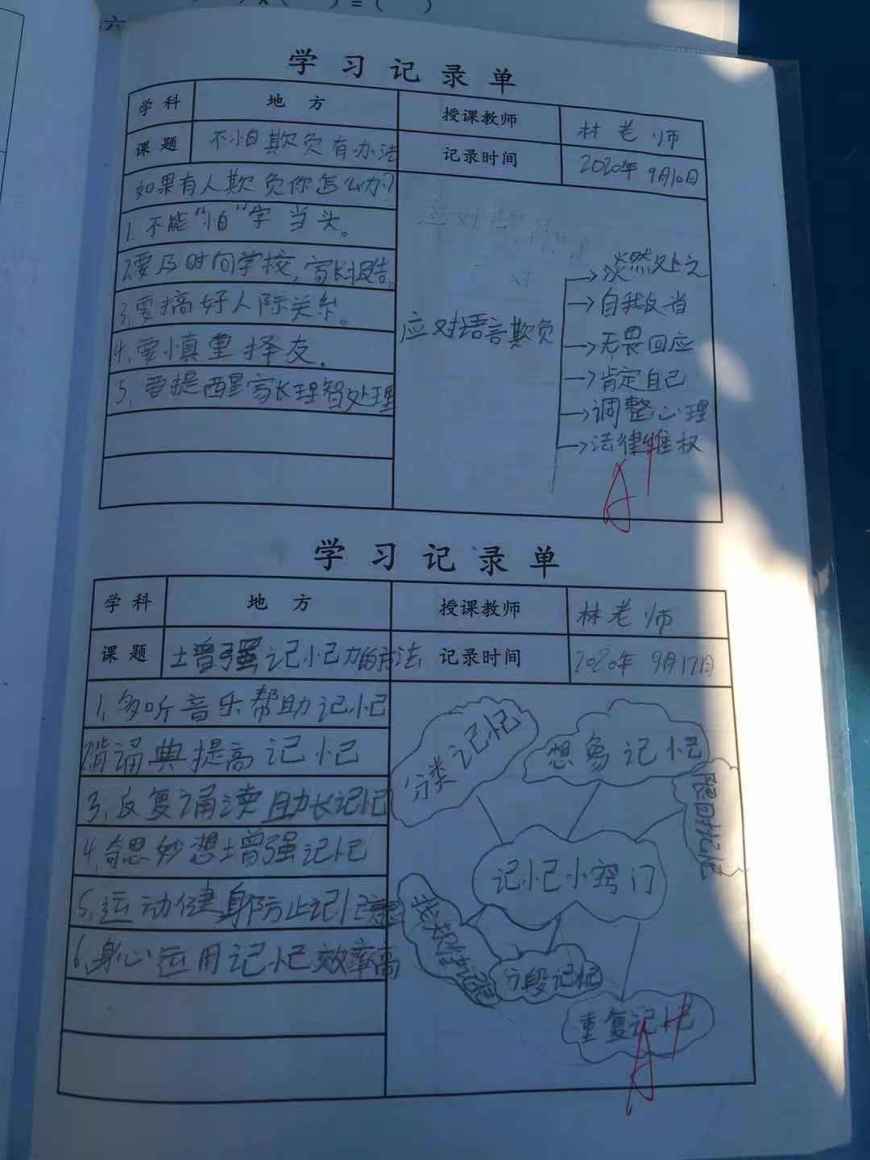 六
学习记录单
学科 地方 授课教师 林老师
课题 不怕欺负有办法 记录时间 2020年9月10日
如果有人欺负你怎么办?
1.不能“怕”字当头。
2.要及时向学校,家长报告。
3.要搞好人际关系。
4.要慎重择友.
5.要提醒家长理智处理
应对语言欺负
→淡然处之
→自我反省
→无畏回应
→肯定自己
→调整心理
→法律维权
A+
学习记录单
学科 地方 授课教师 林老师
课题 增强记忆力的方法 记录时间 2020年9月17日
1.多听音乐帮助记忆
2背诵典提高记忆
3.反复诵读助长记忆
4.奇思妙想增强记忆
5.运动健身防止记忆衰
6.身心运用记忆效率高
分类记忆
想象记忆
记忆小窍门
找规律记忆
分段记忆
重复记忆
A+